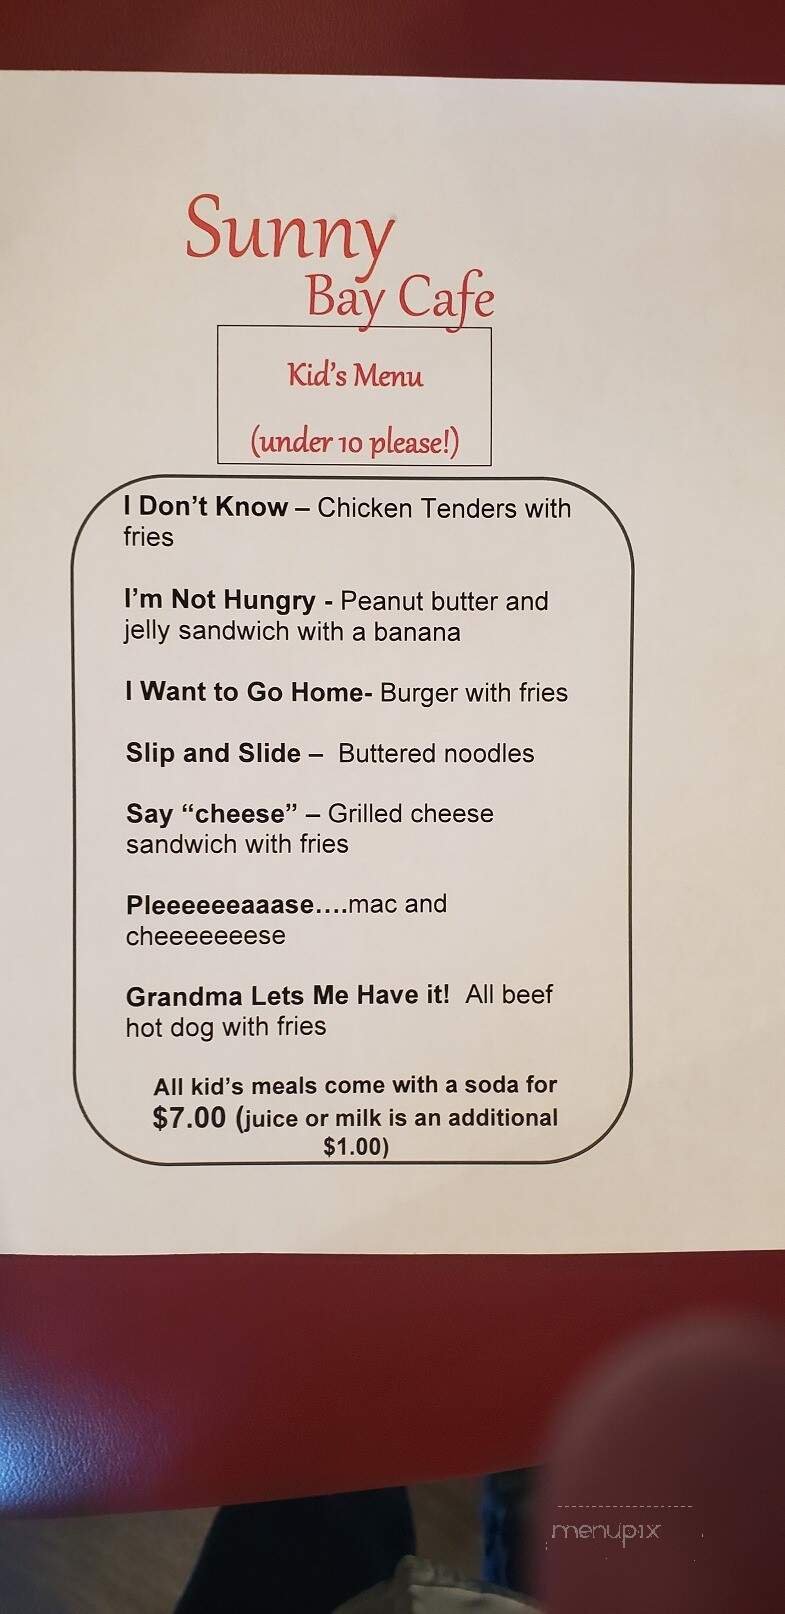 Sunny
Bay Cafe
Kid's Menu
(under 10 please!)
I Don’t Know – Chicken Tenders with
fries
I’m Not Hungry - Peanut butter and
jelly sandwich with a banana
I Want to Go Home- Burger with fries
Slip and Slide – Buttered noodles
Say “cheese” – Grilled cheese
sandwich with fries
Pleeeeeeaaase....mac and
cheeeeeeese
Grandma Lets Me Have it! All beef
hot dog with fries
All kid’s meals come with a soda for
$7.00 (juice or milk is an additional
$1.00)
menupix